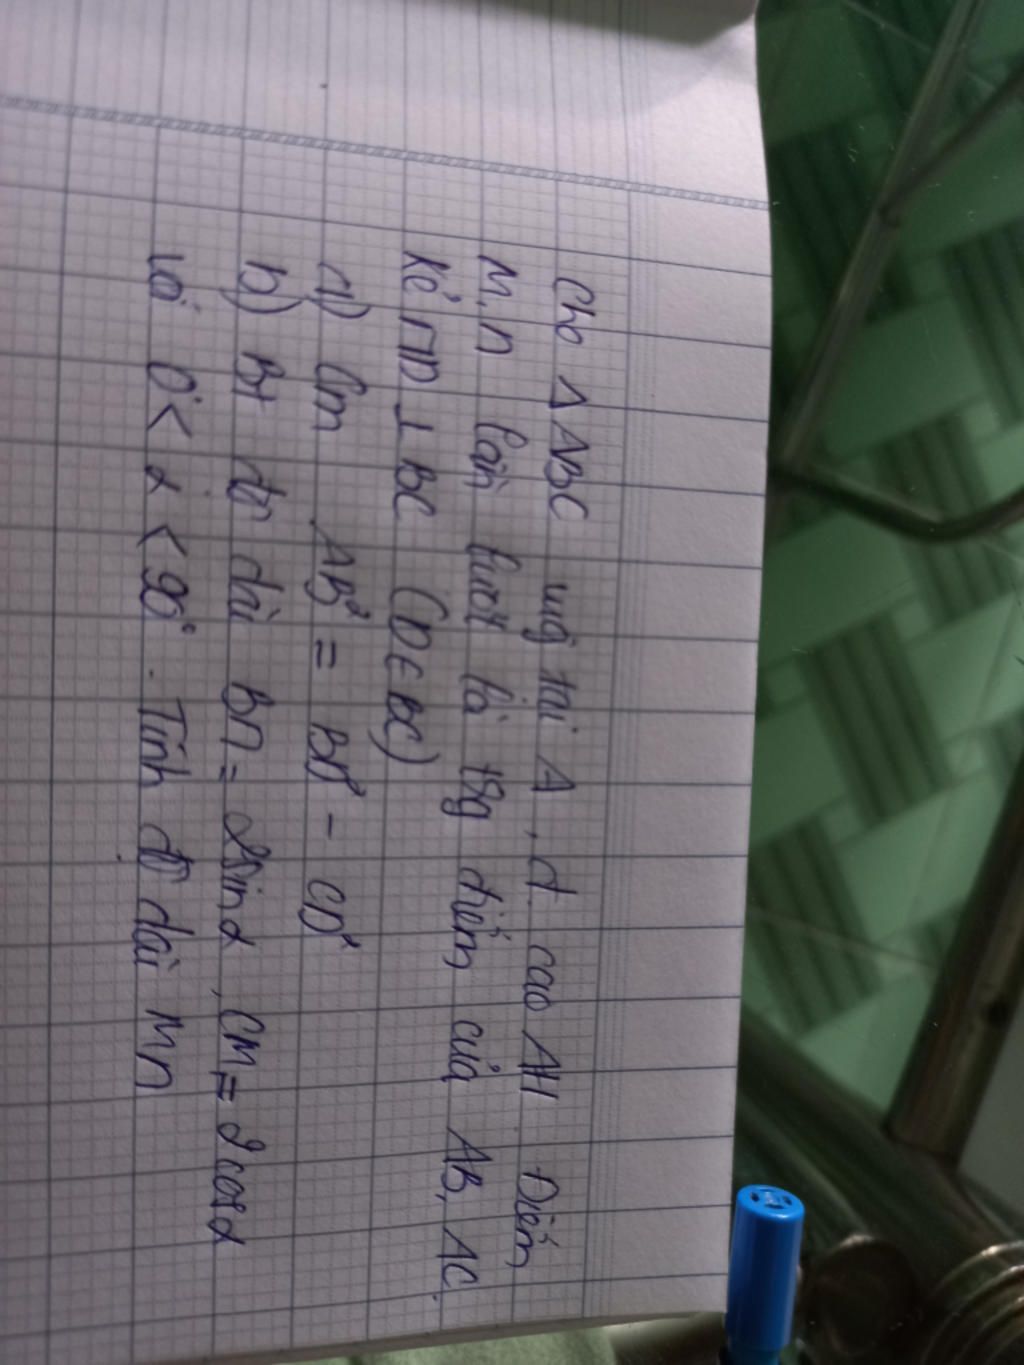 Cho Δ ABC vug tại A, đ. cao AH Điểm
M, n lần lượt là trg điểm của AB, AC.
Kẻ nD ⊥ BC (D ∈ BC)
a) Cm AB² = BD² - CD²
b) Bt độ dài Bn = 2sinα, CM = 2cosα
với 0° < α < 90°. Tính độ dài Mn